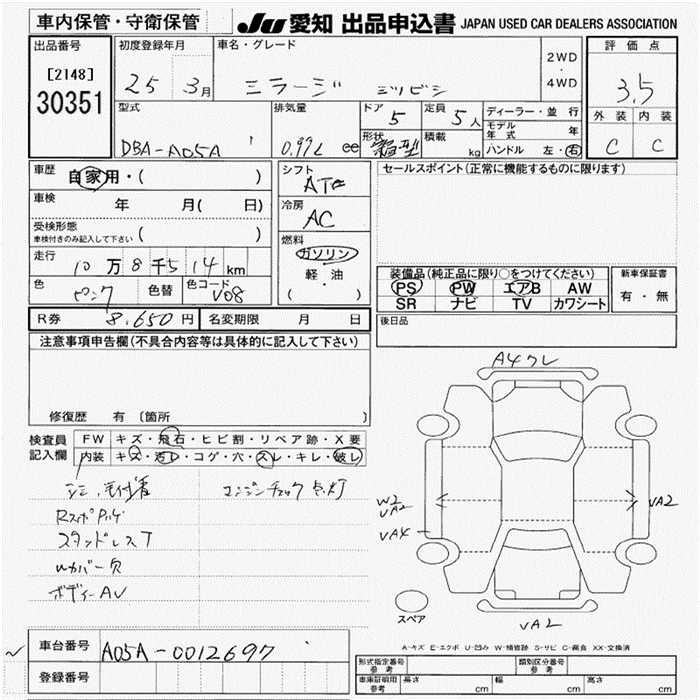 車内保管・守衛保管 JU 愛知 出品申込書 JAPAN USED CAR DEALERS ASSOCIATION
出品番号 初度登録年月 車名・グレード 2WD・4WD 評価点
[2148]
30351
25 3月 ミラージ ミツビシ 3.5
型式 排気量 ドア 定員 ディーラー・並行 外装 内装
DBA-A05A 0.99L cc 5 5人 モデル年式 年
形状 箱型 積載 kg ハンドル 左・右 C C
車歴 自家用・( ) シフト AT セールスポイント(正常に機能するものに限ります)
車検 年 月( 日) 冷房 AC
受検形態 ( )
車検付きのみ記入して下さい
燃料 ガソリン
走行 10万8千514km 軽・油
( ・ )
装備品(純正品に限り○をつけてください) 新車保証書
色 ピンク 色替 色コード V08 PS PW エアB AW 有・無
SR ナビ TV カワシート
R券 8,650円 名変期限 月 日 後日品
注意事項申告欄(不具合内容等は具体的に記入して下さい)
A4ワレ
修復歴 有 〔箇所
検査員記入欄 FW キズ・飛石・ヒビ割・リペア跡・X要
内装 キズ・汚レ・コゲ・穴・スレ・キレ・破レ
シミ、毛付着 エンジンチェック点灯
スタッドレスT
カバー欠
ボディーAU
W2
VA2
VA4
VA2
スペア
VA2
A-キズ E-エクボ U-凹み W-補修跡 S-サビ C-腐食 XX-交換済
車台番号 A05A-0012697
登録番号
形式指定番号 参考 類別区分番号 参考
車庫証明用 参考 長さ cm 幅 cm 高さ cm